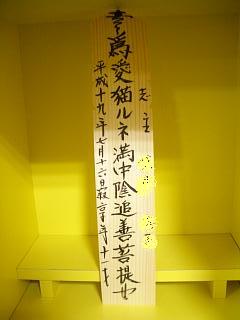 志主
為愛猫ルネ満中陰追善菩提也
平成十九年七月十六日 享年十一才